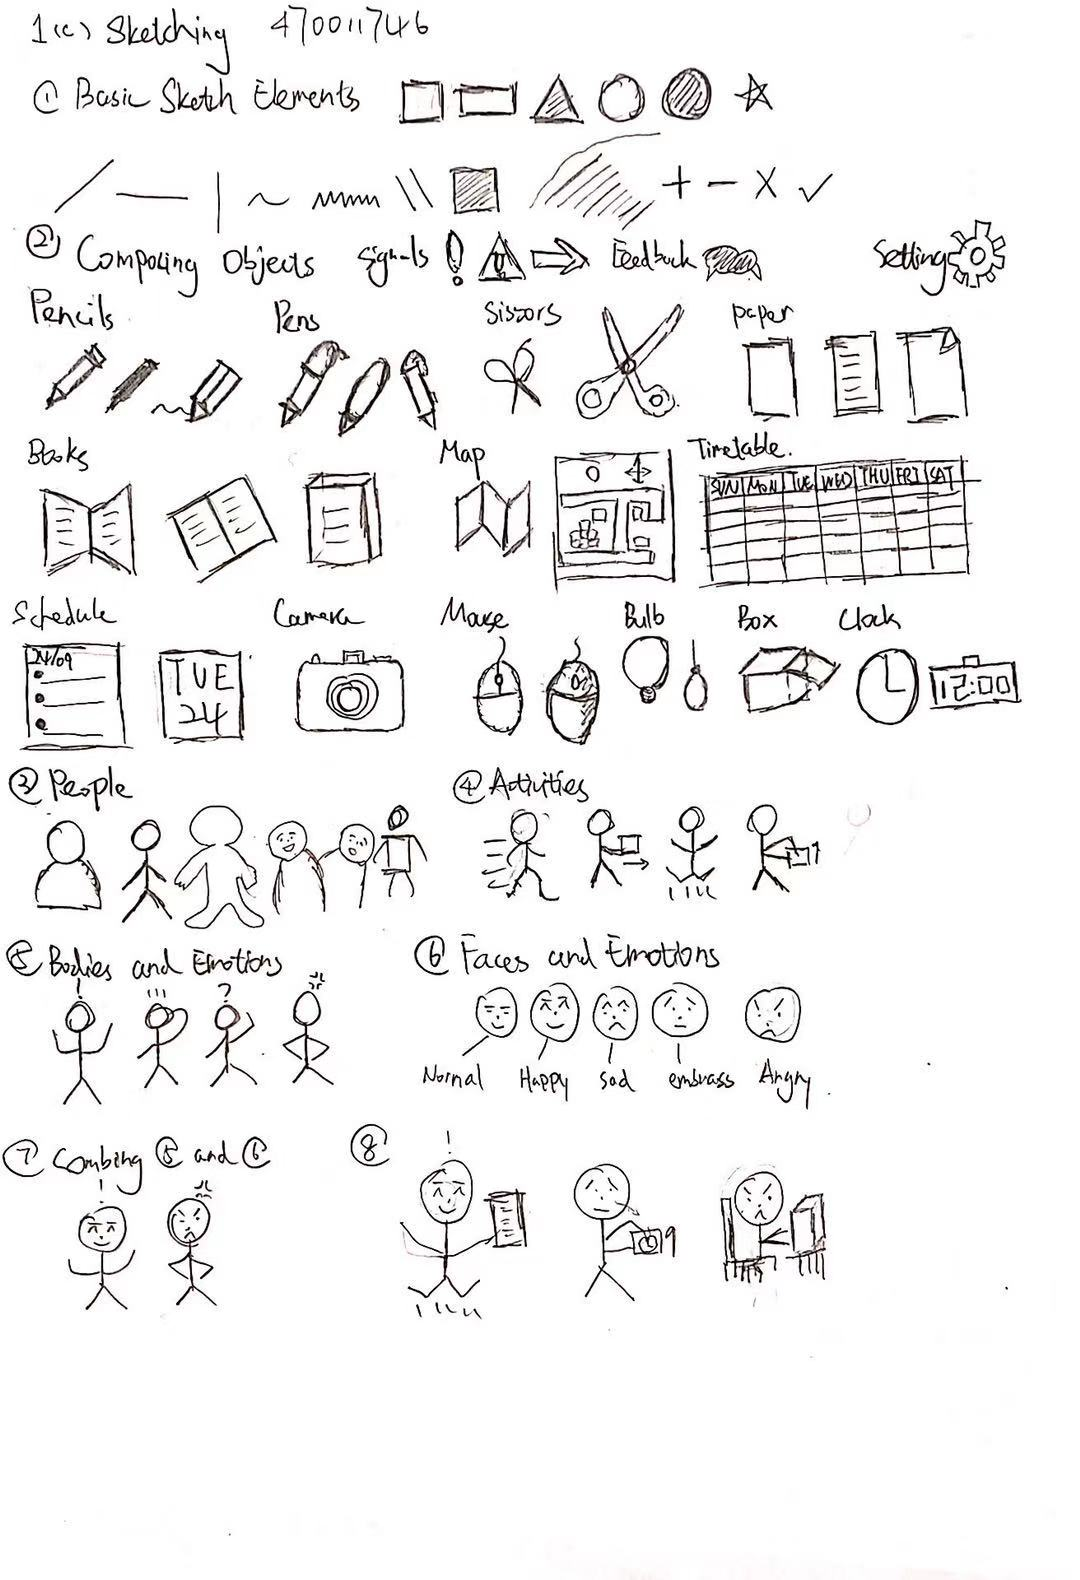 1(c) Sketching 470011746
① Basic Sketch Elements
+ − X ✓
② Composing Objects Signals ! Feedback Setting
Pencils Pens Sissors paper
Books Map Timetable.
SUN MON TUE WED THU FRI SAT
Schedule Camera Mouse Bulb Box Clock
24/09
TUE
24
12:00
③ People ④ Activities
⑤ Bodies and Emotions ⑥ Faces and Emotions
! !!! ?
Normal Happy Sad embrass Angry
⑦ Combing ⑤ and ⑥ ⑧
! !